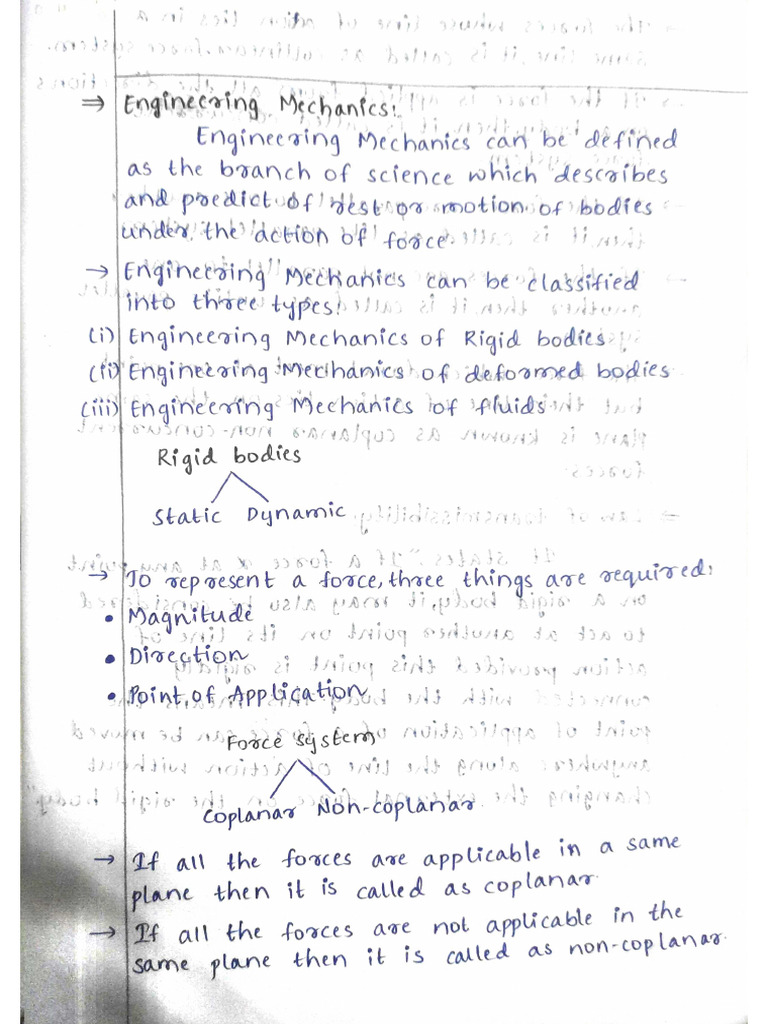 ⇒ Engineering Mechanics:
Engineering Mechanics can be defined
as the branch of science which describes
and predict of rest or motion of bodies
under the action of force
→ Engineering Mechanics can be classified
into three types:
(i) Engineering Mechanics of Rigid bodies
(ii) Engineering Mechanics of deformed bodies
(iii) Engineering Mechanics of fluids
Rigid bodies
Static Dynamic
→ To represent a force, three things are required:
• Magnitude
• Direction
• Point of Application
Force System
Coplanar Non-coplanar
→ If all the forces are applicable in a same
plane then it is called as coplanar.
→ If all the forces are not applicable in the
same plane then it is called as non-coplanar.